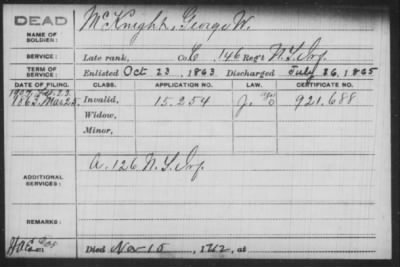 DEAD
NAME OF SOLDIER: McKnight, George W.
SERVICE: Late rank, Co. C, 146 Reg't N.Y. Inf.
TERM OF SERVICE: Enlisted Oct 23, 1863 Discharged July 26, 1865
DATE OF FILING. CLASS. APPLICATION NO. LAW. CERTIFICATE NO.
1863. Mar 25. Invalid, 15.254 921.688
Widow,
Minor,
ADDITIONAL SERVICES: A. 126 N.Y. Inf.
REMARKS:
Died Nov 15, , at